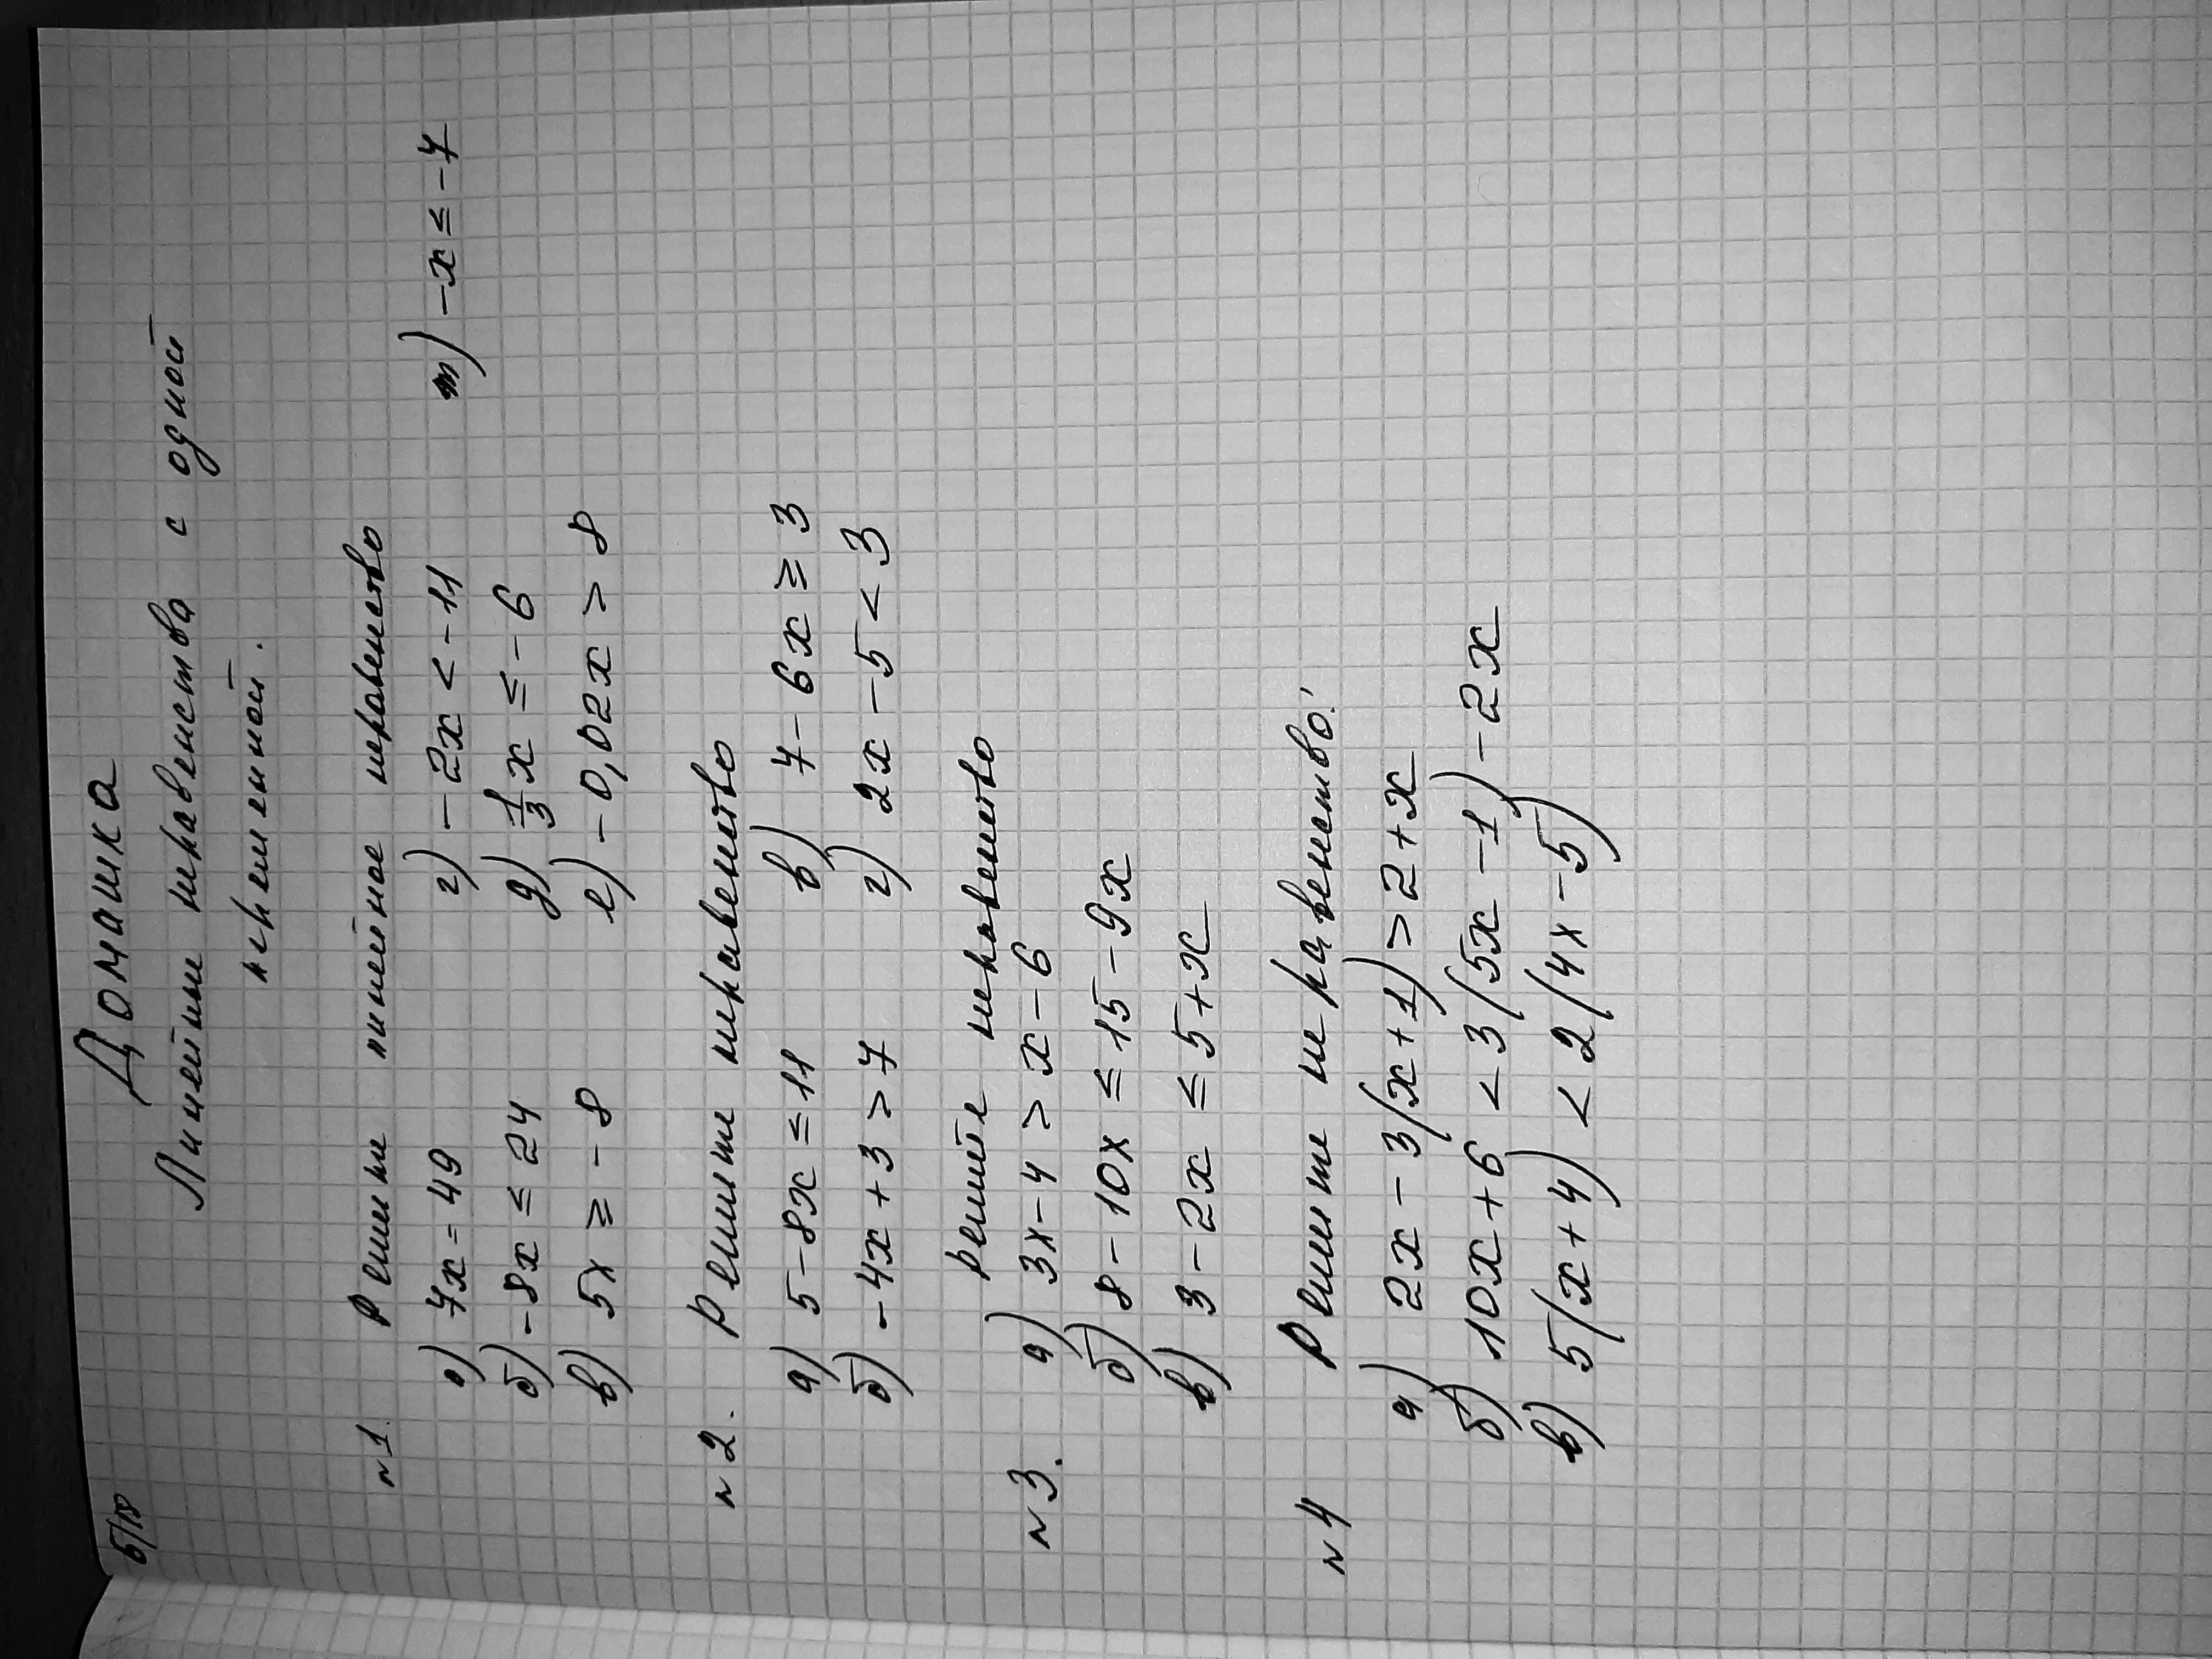 Домашка
Линейные неравенства с одной
переменной.
б/н
n1. Решите линейное неравенство
а) 7x = 49 г) -2x < -11 m) -x ≤ -7
б) -8x ≤ 24 д) 1/3 x ≤ -6
в) 5x ≥ -8 е) -0,02x > 8
n2. Решите неравенство
а) 5-8x = 11 в) 7-6x ≥ 3
б) -4x+3 > 7 г) 2x-5 < 3
n3. Решите неравенство
а) 3x-4 > x-6
б) 8-10x ≤ 15-9x
в) 3-2x ≤ 5+x
n4 Решите неравенство:
а) 2x-3(x+1) > 2+x
б) 10x+6 < 3(5x-1)-2x
в) 5(x+4) < 2(4x-5)